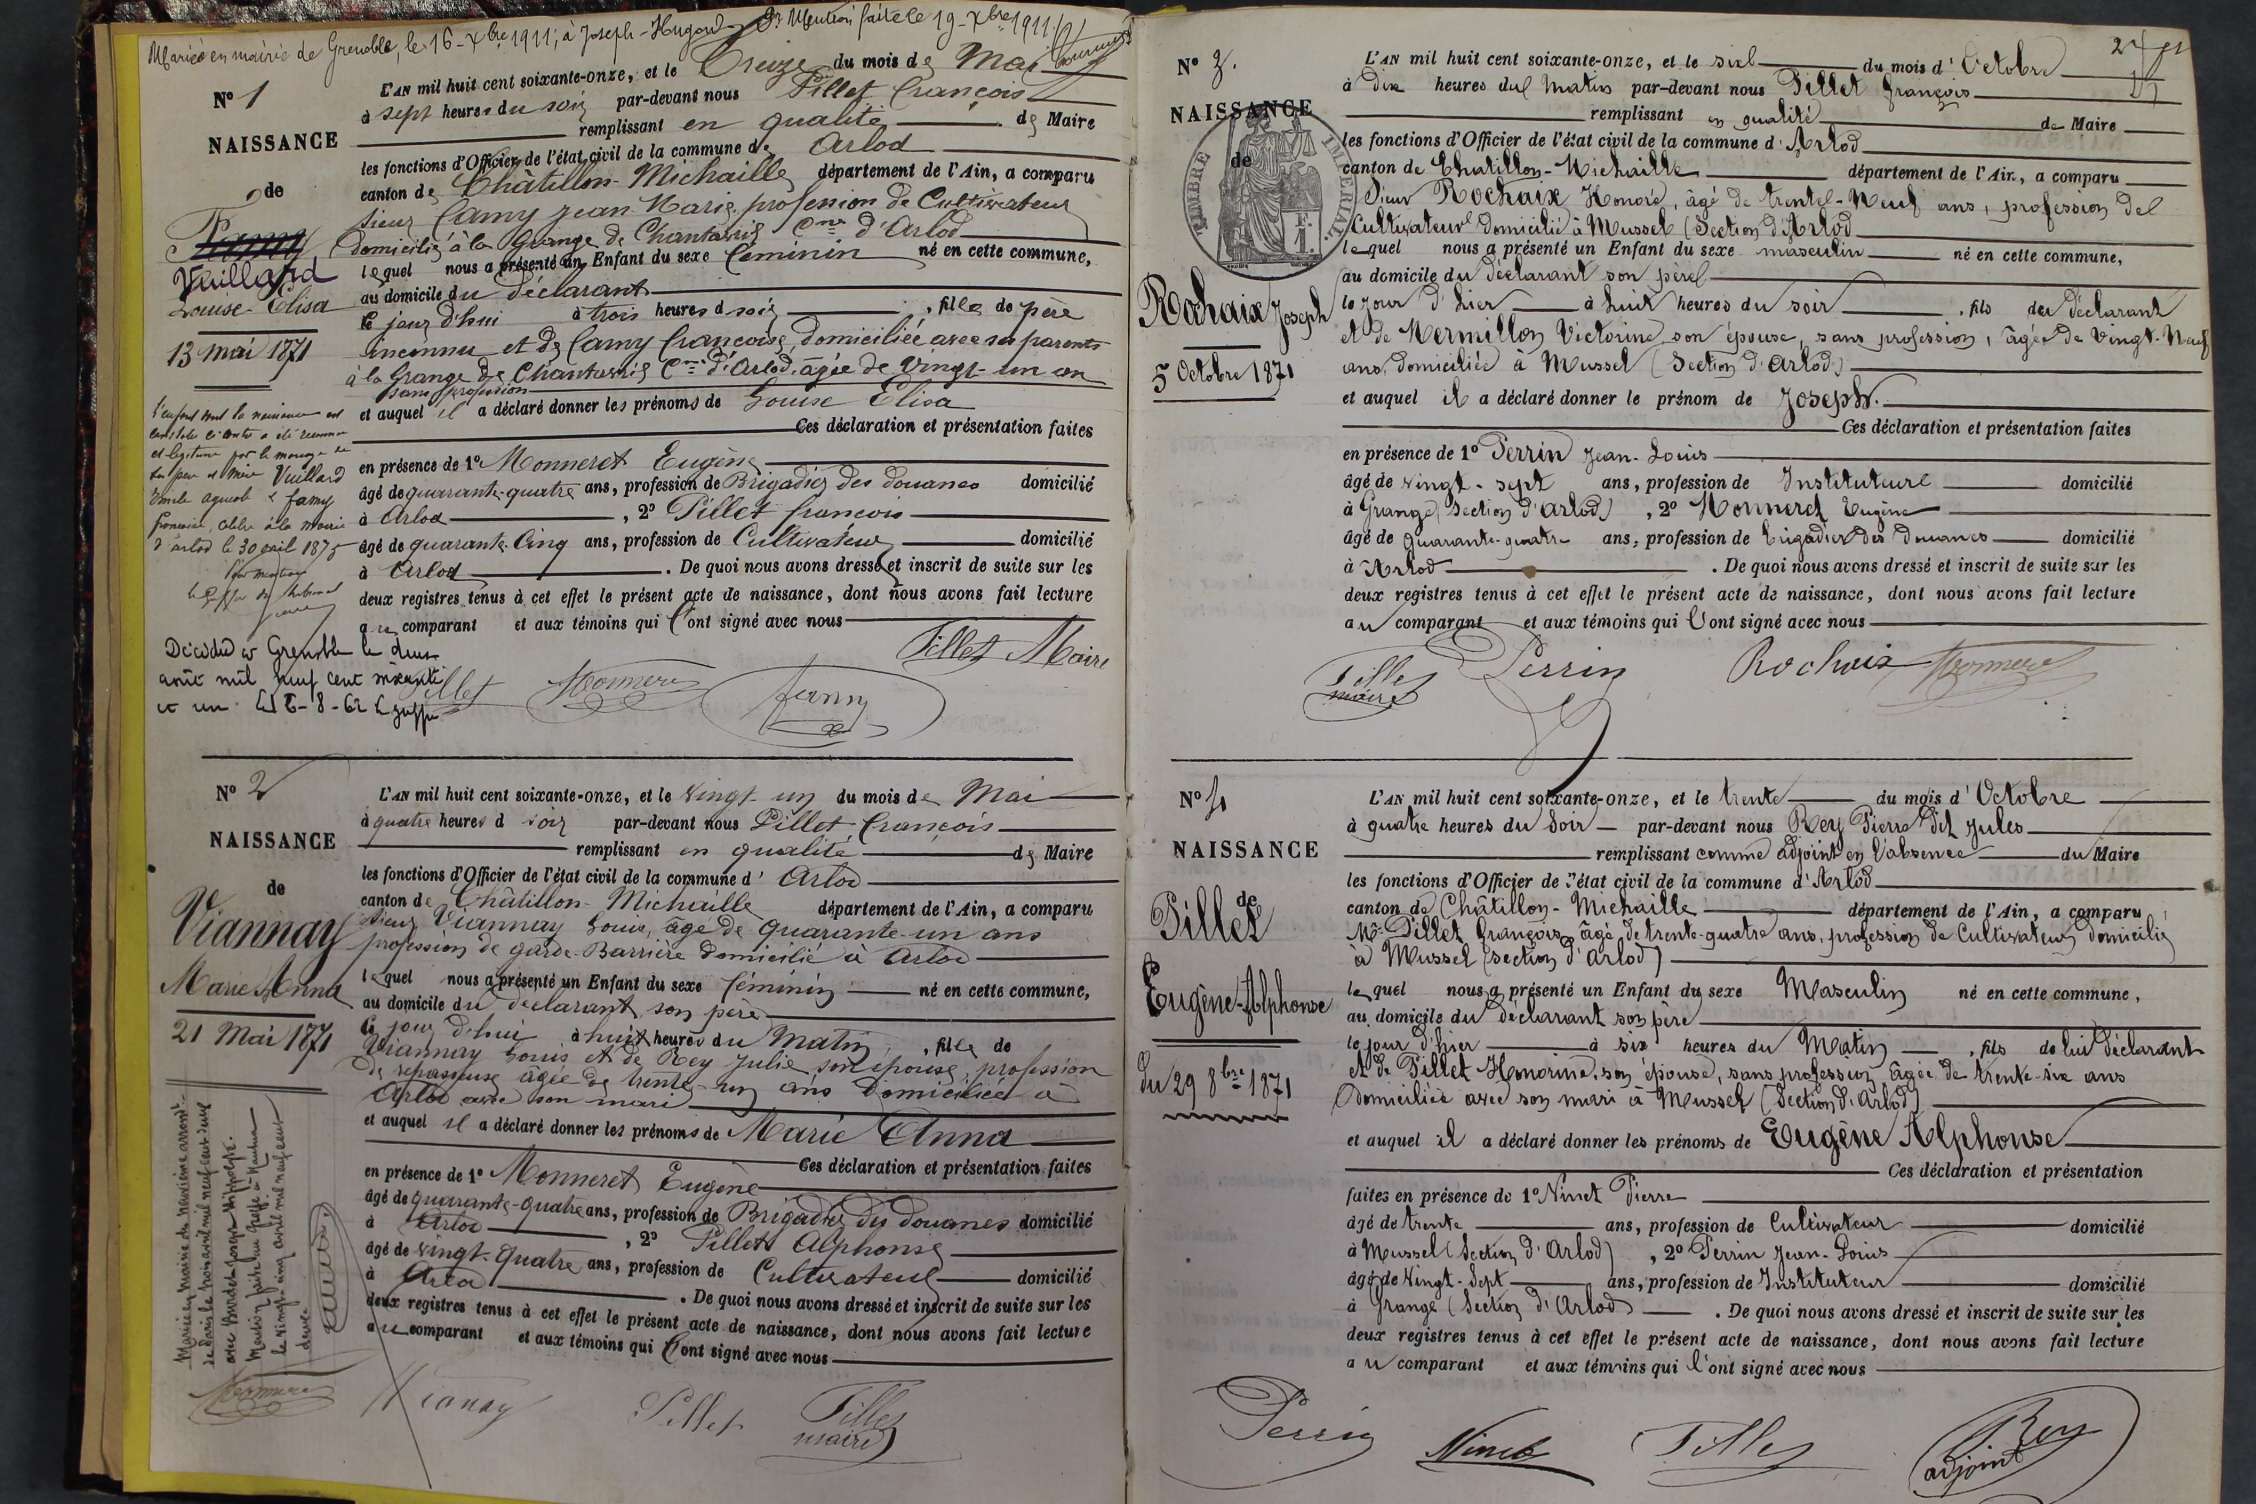 Mariée en mairie de Grenoble, le 16 - Xbre 1911, à Joseph - Hugard Mention faite le 19 - Xbre 1911
N° 1
NAISSANCE
de
Famy
Vuillard
Louise-Elisa
13 mai 1871
L'enfant dont la naissance est
constatée ci contre a été reconnu
et légitimé par le mariage de
ses père et mère Vuillard
Emile et famy
françoise, célébré à la mairie
d'arlod le 30 avril 1875
Pour mention
le Greffier du tribunal
Décédée à Grenoble le deux
août mil neuf cent soixante
et un. Le 6-8-62
L'AN mil huit cent soixante-onze, et le Treize du mois de Mai
à sept heures du soir par-devant nous Pillet françois
remplissant en qualité de Maire
les fonctions d'Officier de l'état civil de la commune de Arlod
canton de Châtillon-Michaille département de l'Ain, a comparu
sieur famy Jean-Marie profession de Cultivateur
domicilié à la Grange de Chantavril Cne d'Arlod
lequel nous a présenté un Enfant du sexe féminin né en cette commune,
au domicile du déclarant
le jour d'hui à trois heures d soir, fille de père
inconnu et de famy françoise, domiciliée avec ses parents
à la Grange de Chantavril Cne d'Arlod, âgée de vingt-un an
sans profession
et auquel il a déclaré donner les prénoms de Louise Elisa
Ces déclaration et présentation faites
en présence de 1° Monneret Eugène
âgé de quarante-quatre ans, profession de Brigadier des douanes domicilié
à Arlod, 2° Pillet françois
âgé de quarante-Cinq ans, profession de Cultivateur domicilié
à Arlod. De quoi nous avons dressé et inscrit de suite sur les
deux registres tenus à cet effet le présent acte de naissance, dont nous avons fait lecture
au comparant et aux témoins qui l'ont signé avec nous
Pillet Maire
Pillet Monneret famy
N° 2
NAISSANCE
de
Viannay
Marie Anna
21 Mai 1871
Mariée en mairie du neuvième arront
de Paris le trois avril mil neuf cent deux
avec Bordet Joseph Hippolyte.
Mention faite au Greffe à Nantua
le vingt cinq avril mil neuf cent
deux
L'AN mil huit cent soixante-onze, et le Vingt-un du mois de Mai
à quatre heures d soir par-devant nous Pillet françois
remplissant en qualité de Maire
les fonctions d'Officier de l'état civil de la commune d' Arlod
canton de Châtillon-Michaille département de l'Ain, a comparu
sieur Viannay Louis, âgé de quarante-un ans
profession de garde-Barrière domicilié à Arlod
lequel nous a présenté un Enfant du sexe féminin né en cette commune,
au domicile du déclarant son père
le jour d'hui à huit heures du Matin, fille de
Viannay Louis et de Rey Julie son épouse, profession
de repasseuse âgée de trente-un ans domiciliée à
Arlod avec son mari
et auquel il a déclaré donner les prénoms de Marie Anna
Ces déclaration et présentation faites
en présence de 1° Monneret Eugène
âgé de quarante-quatre ans, profession de Brigadier des douanes domicilié
à Arlod, 2° Pillet Alphonse
âgé de vingt-quatre ans, profession de Cultivateur domicilié
à Arlod. De quoi nous avons dressé et inscrit de suite sur les
deux registres tenus à cet effet le présent acte de naissance, dont nous avons fait lecture
au comparant et aux témoins qui l'ont signé avec nous
Monneret Vianay Pillet Pillet
maire
N° 3.
NAISSANCE
de
TIMBRE IMPERIAL
Rochaix Joseph
5 Octobre 1871
L'AN mil huit cent soixante-onze, et le six du mois d' Octobre
à dix heures du Matin par-devant nous Pillet françois
remplissant en qualité de Maire
les fonctions d'Officier de l'état civil de la commune d' Arlod
canton de Chatillon-Michaille département de l'Ain, a comparu
Sieur Rochaix Honoré, âgé de trente-Neuf ans, profession de
Cultivateur domicilié à Mussel (Section d'Arlod
lequel nous a présenté un Enfant du sexe masculin né en cette commune,
au domicile du déclarant son père
le jour d'hier à huit heures du soir, fils du déclarant
et de Mermillon Victorine son épouse, sans profession, âgée de vingt-Neuf
ans, domiciliée à Mussel (Section d'Arlod)
et auquel il a déclaré donner le prénom de Joseph.
Ces déclaration et présentation faites
en présence de 1° Perrin Jean-Louis
âgé de vingt-sept ans, profession de Instituteur domicilié
à Grange (Section d'Arlod), 2° Monneret Eugène
âgé de quarante-quatre ans, profession de Brigadier des Douanes domicilié
à Arlod. De quoi nous avons dressé et inscrit de suite sur les
deux registres tenus à cet effet le présent acte de naissance, dont nous avons fait lecture
au comparant et aux témoins qui l'ont signé avec nous
Pillet Perrin Rochaix Monneret
maire
N° 4
NAISSANCE
de
Pillet
Eugène-Alphonse
du 29 8bre 1871
L'AN mil huit cent soixante-onze, et le trente du mois d' Octobre
à quatre heures du Soir par-devant nous Rey Pierre dit Jules
remplissant comme adjoint en l'absence du Maire
les fonctions d'Officier de l'état civil de la commune d' Arlod
canton de Châtillon-Michaille département de l'Ain, a comparu
Mr Pillet françois, âgé de trente-quatre ans, profession de Cultivateur domicilié
à Mussel (section d'Arlod)
lequel nous a présenté un Enfant du sexe Masculin né en cette commune,
au domicile du déclarant son père
le jour d'hier à six heures du Matin, fils de lui déclarant
et de Pillet Honorine, son épouse, sans profession âgée de trente-six ans
domiciliée avec son mari à Mussel (Section d'Arlod)
et auquel il a déclaré donner les prénoms de Eugène Alphonse
Ces déclaration et présentation
faites en présence de 1° Ninet Pierre
âgé de trente ans, profession de Cultivateur domicilié
à Mussel (Section d'Arlod), 2° Perrin Jean-Louis
âgé de Vingt-Sept ans, profession de Instituteur domicilié
à Grange (Section d'Arlod). De quoi nous avons dressé et inscrit de suite sur les
deux registres tenus à cet effet le présent acte de naissance, dont nous avons fait lecture
au comparant et aux témoins qui l'ont signé avec nous
Perrin Ninet Pillet Rey
adjoint